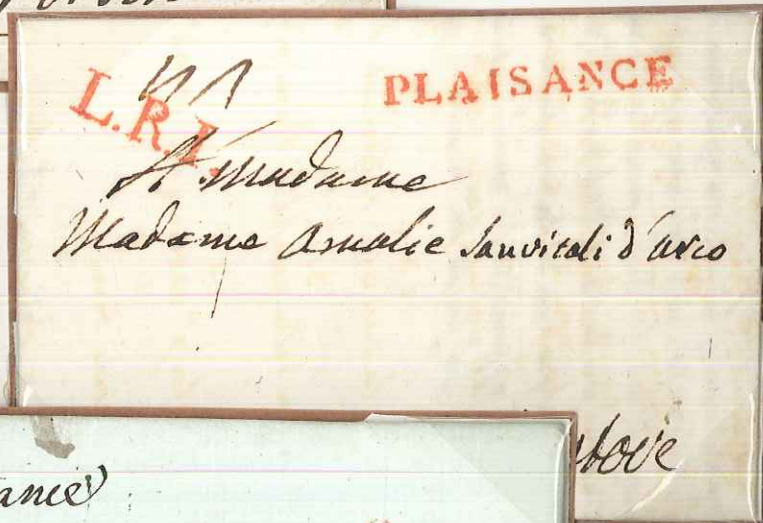 PLAISANCE
L.R.I.
A Madame
Madame Amalie Sanvitali d'arco